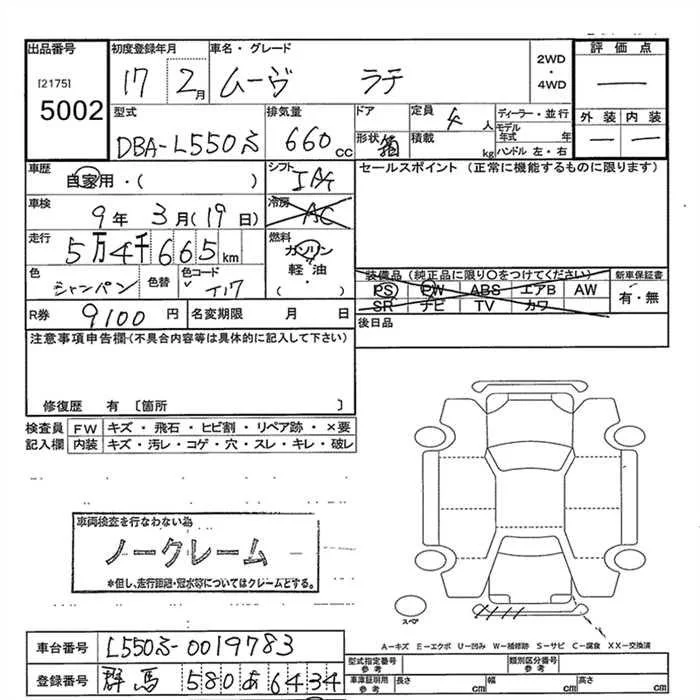 出品番号
[2175]
5002
初度登録年月
17 2月
車名・グレード
ムーヴ ラテ
2WD・4WD
評価点
―
外装 内装
― ―
型式
DBA-L550S
排気量
660cc
ドア
形状 箱
定員 4人
積載 kg
ディーラー・並行
モデル年式 年
ハンドル 左・右
車歴
自家用・( )
シフト
IA
セールスポイント (正常に機能するものに限ります)
車検
9年 3月(19日)
冷房
AC
走行
5万4千665km
燃料
ガソリン
軽油
・
( )
色
シャンパン
色替
色コード
T17
装備品(純正品に限り○をつけてください)
PS PW ABS エアB AW
SR ナビ TV カワ
新車保証書
有・無
R券 9100円
名変期限 月 日
後日品
注意事項申告欄(不具合内容等は具体的に記入して下さい)
修復歴 有 〔箇所 〕
検査員記入欄
FW キズ・飛石・ヒビ割・リペア跡・×要
内装 キズ・汚レ・コゲ・穴・スレ・キレ・破レ
車両検査を行なわない為
ノークレーム
*但し、走行距離・冠水等についてはクレームとする。
スペア
A―キズ E―エクボ U―凹み W―補修跡 S―サビ C―腐食 XX―交換済
車台番号 L550S-0019783
登録番号 群馬 580 あ 6434
型式指定番号 参考
類別区分番号 参考
車庫証明用 参考
長さ cm 幅 cm 高さ cm